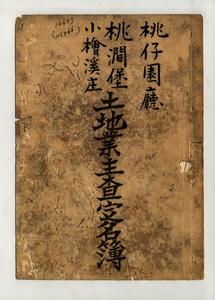 桃仔園廳
桃澗堡土地業主查定名簿
小檜溪庄